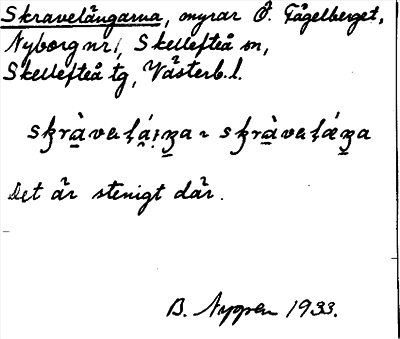 Skravelängarna, myrar Ö. Fågelberget,
Nyborg nr 1, Skellefteå sn,
Skellefteå tg, Västerb. l.
Det är stenigt där.
B. Nygren 1933.